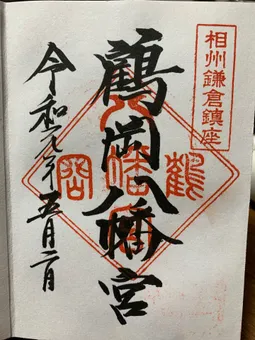 相州鎌倉鎮座
鶴岡八幡宮
令和元年五月二日